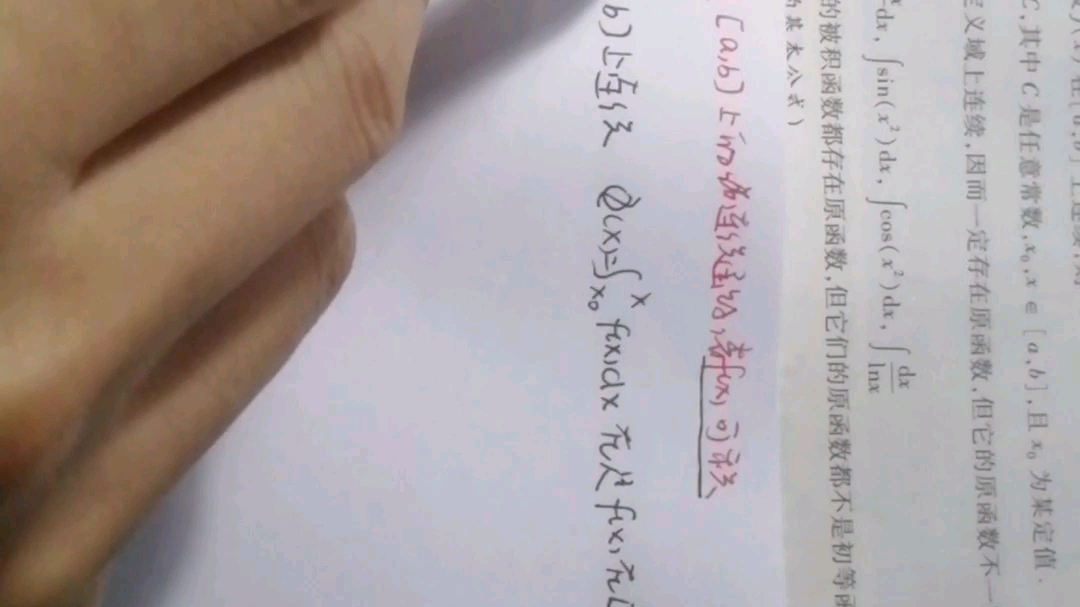 )在[a,b]上连续,则
C,其中 C 是任意常数,x₀,x ∈ [a,b],且 x₀ 为某定值.
定义域上连续,因而一定存在原函数,但它的原函数不一
dx, ∫sin(x²)dx, ∫cos(x²)dx, ∫dx/lnx
的被积函数都存在原函数,但它们的原函数都不是初等函
基本公式)
[a,b]上的 连续 ,若f(x)可积
b]上连续 Φ(x)=∫ₓ₀ˣ f(x)dx 无 f(x)无